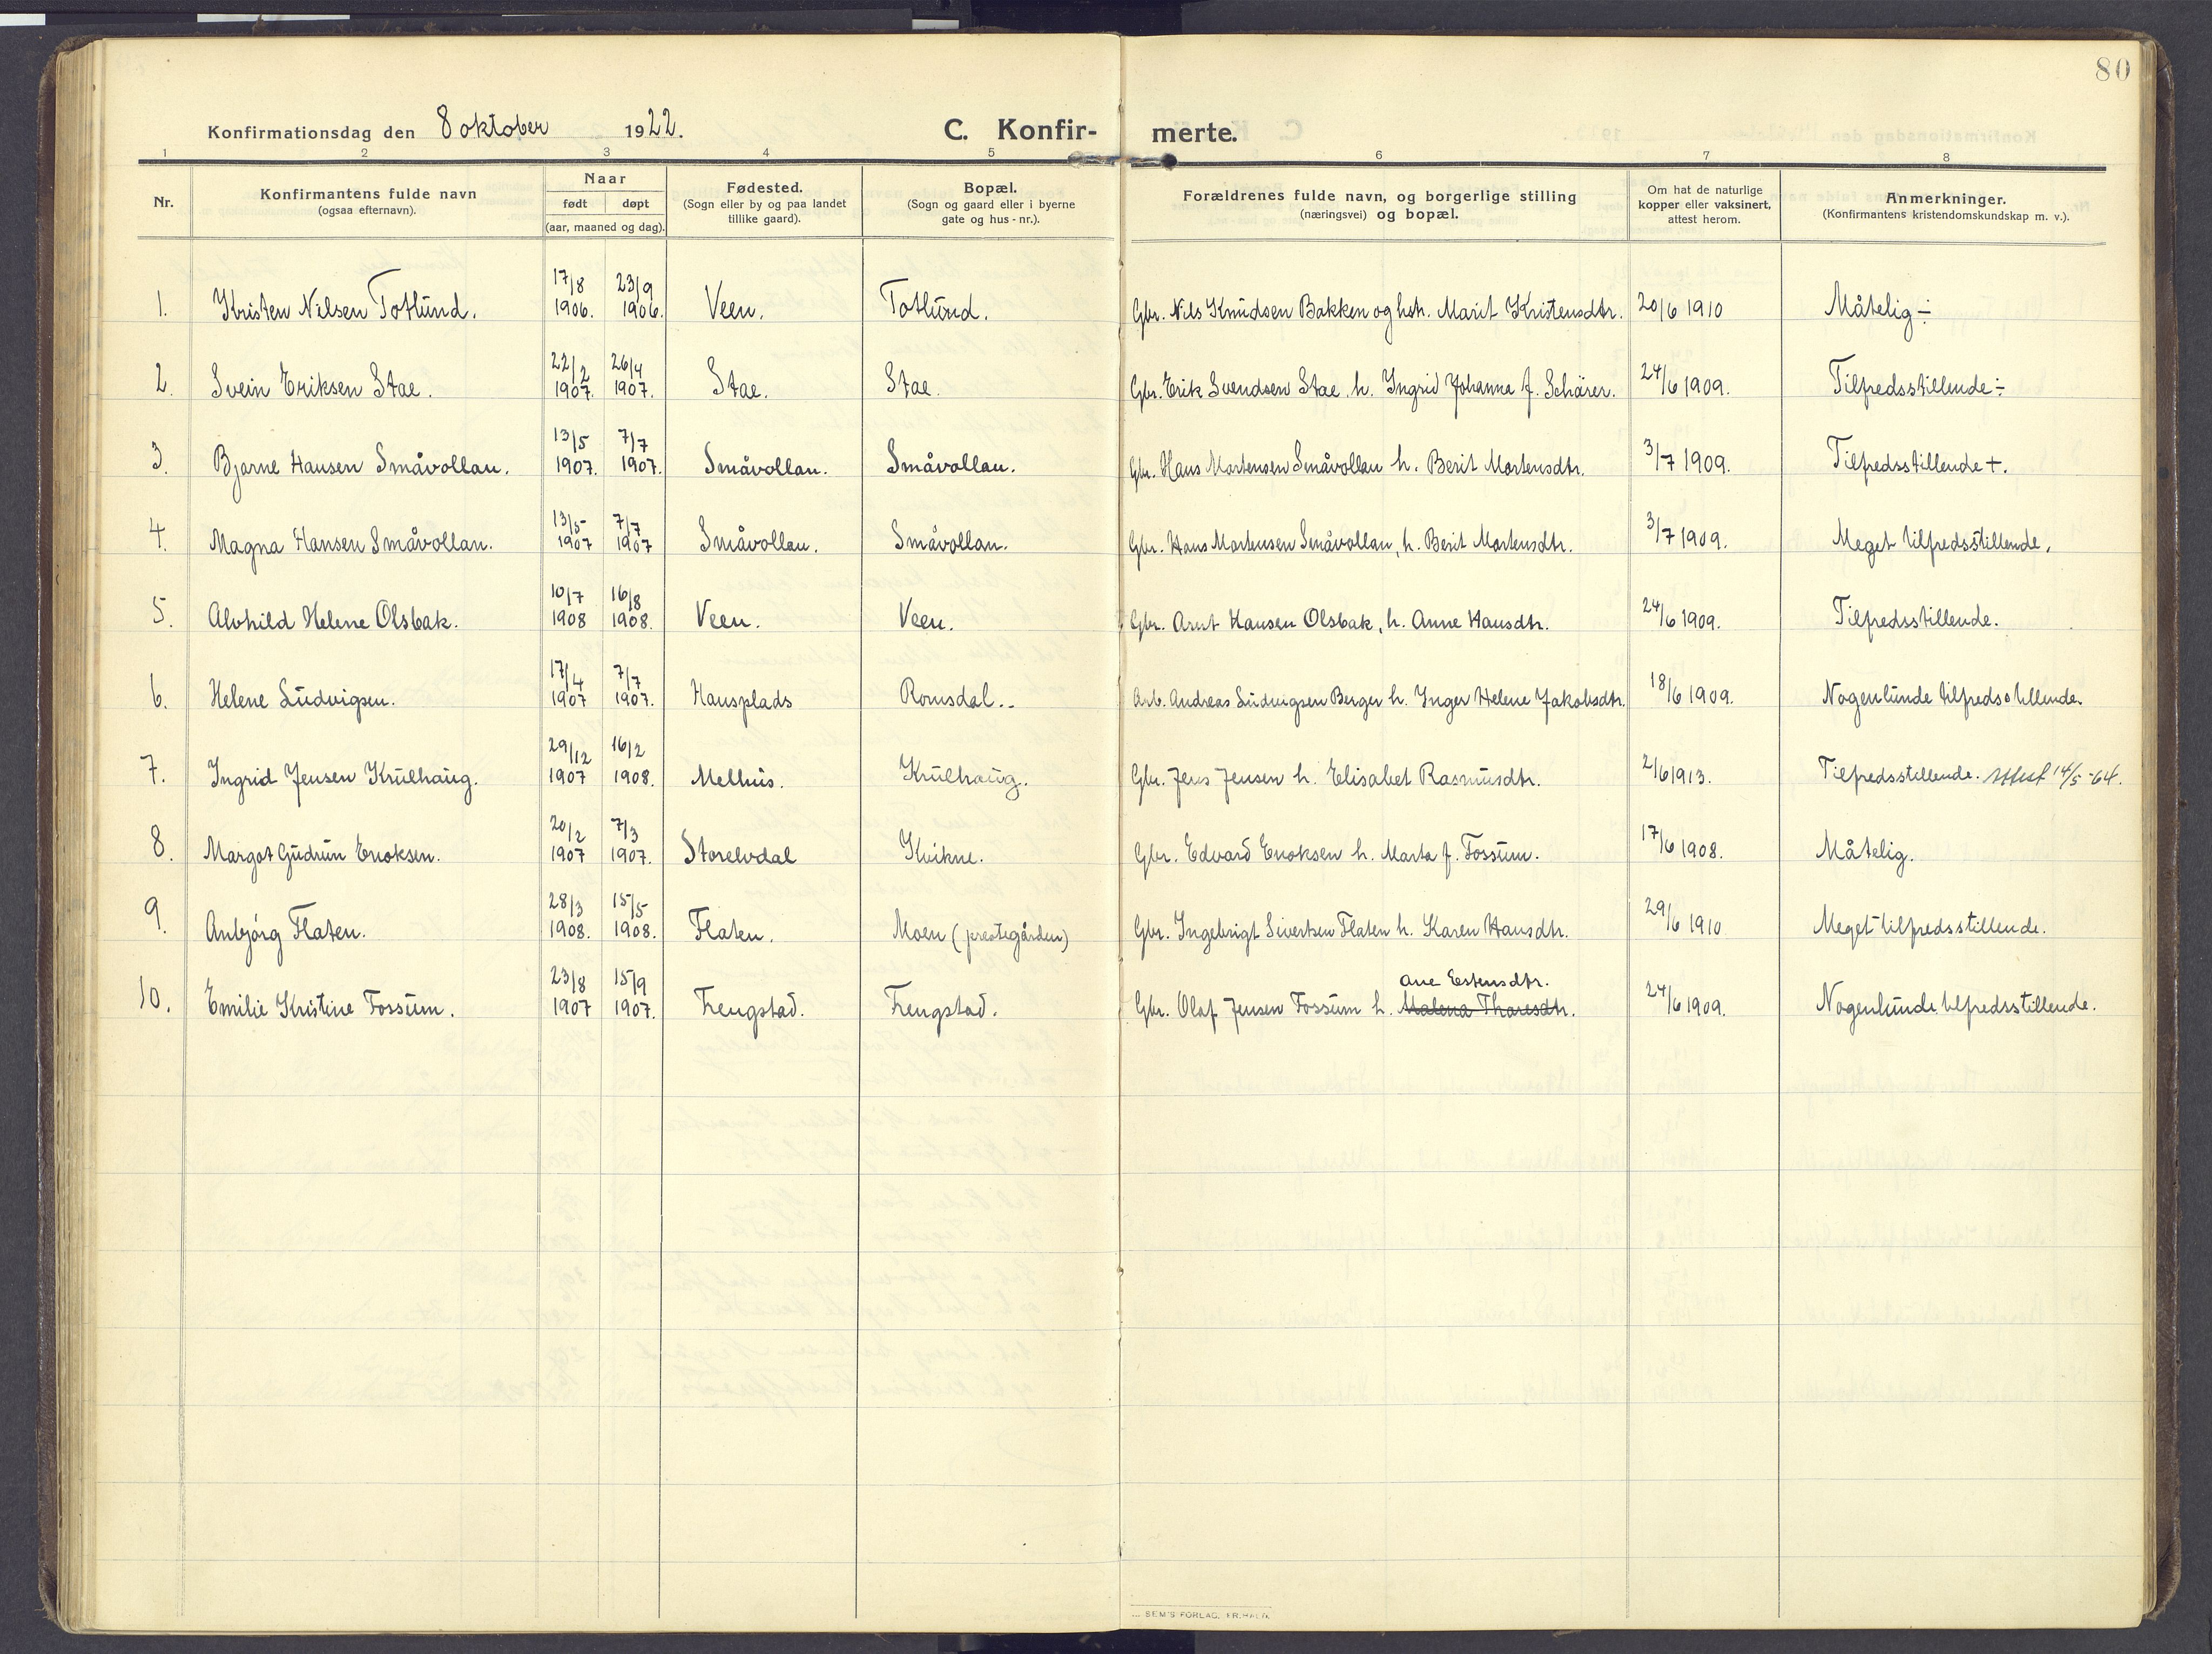 80
Konfirmationsdag den 8 oktober 1922. C. Konfir- merte.
1 2 3 4 5 6 7 8
Nr.
Konfirmantens fulde navn
(ogsaa efternavn).
Naar
født døpt
(aar, maaned og dag).
Fødested.
(Sogn eller by og paa landet
tillike gaard).
Bopæl.
(Sogn og gaard eller i byerne
gate og hus - nr.).
Forældrenes fulde navn, og borgerlige stilling
(næringsvei) og bopæl.
Om hat de naturlige
kopper eller vaksinert,
attest herom.
Anmerkninger.
(Konfirmantens kristendomskundskap m. v.).
17/8 23/9
1. Kristen Nilsen Totlund. 1906. 1906. Veen. Totlund. Gbr. Nils Knudsen Bakken og hstr. Marit Kristensdtr. 20/6 1910 Måtelig ÷
22/2 26/4
2. Svein Eriksen Stae. 1907. 1907. Stae. Stae. Gbr. Erik Svendsen Stae. h. Ingrid Johanna f. Schärer. 24/6 1909. Tilfredsstillende ÷
13/5 7/7
3. Bjarne Hansen Småvollan. 1907. 1907. Småvollan. Småvollan. Gbr. Hans Mortensen Småvollan h. Berit Mortensdtr. 3/7 1909. Tilfredsstillende +.
13/5 7/7
4. Magna Hansen Småvollan. 1907 1907 Småvollan. Småvollan. Gbr. Hans Mortensen Småvollan, h. Berit Mortensdtr. 3/7 1909. Meget tilfredsstillende.
10/7 16/8
5. Alvhild Helene Olsbak. 1908 1908. Veen. Veen. Gbr. Arnt Hansen Olsbak, h. Anne Hansdtr. 24/6 1909. Tilfredsstillende.
17/4 7/7
6. Helene Ludvigsen. 1907 1907. Hansplads Romsdal.. Arb. Andreas Ludvigsen Berger h. Inger Helene Jakobsdtr. 18/6 1909. Nogenlunde tilfredsstillende.
29/12 16/2
7. Ingrid Jensen Krulhaug. 1907 1908. Melhus. Krulhaug. Gbr. Jens Jensen h. Elisabet Rasmusdtr. 2/6 1913. Tilfredsstillende. Attest 14/5-64.
20/2 7/3
8. Margot Gudrun Enoksen. 1907 1907. Storelvdal Kvikne. Gbr. Edvard Enoksen h. Marta f. Fossum. 17/6 1908. Måtelig.
28/3 15/5
9. Anbjörg Flaten. 1908. 1908. Flaten. Moen (prestegården) Gbr. Ingebrigt Sivertsen Flaten h. Karen Hansdtr. 29/6 1910 Meget tilfredsstillende.
23/8 15/9 Ane Estensdtr.
10. Emilie Kristine Fossum. 1907 1907. Frengstad. Frengstad. Gbr. Olaf Jensen Fossum h. Malena Tharesdtr. 24/6 1909. Nogenlunde tilfredsstillende.
SEM'S FORLAG, FR.HALD.